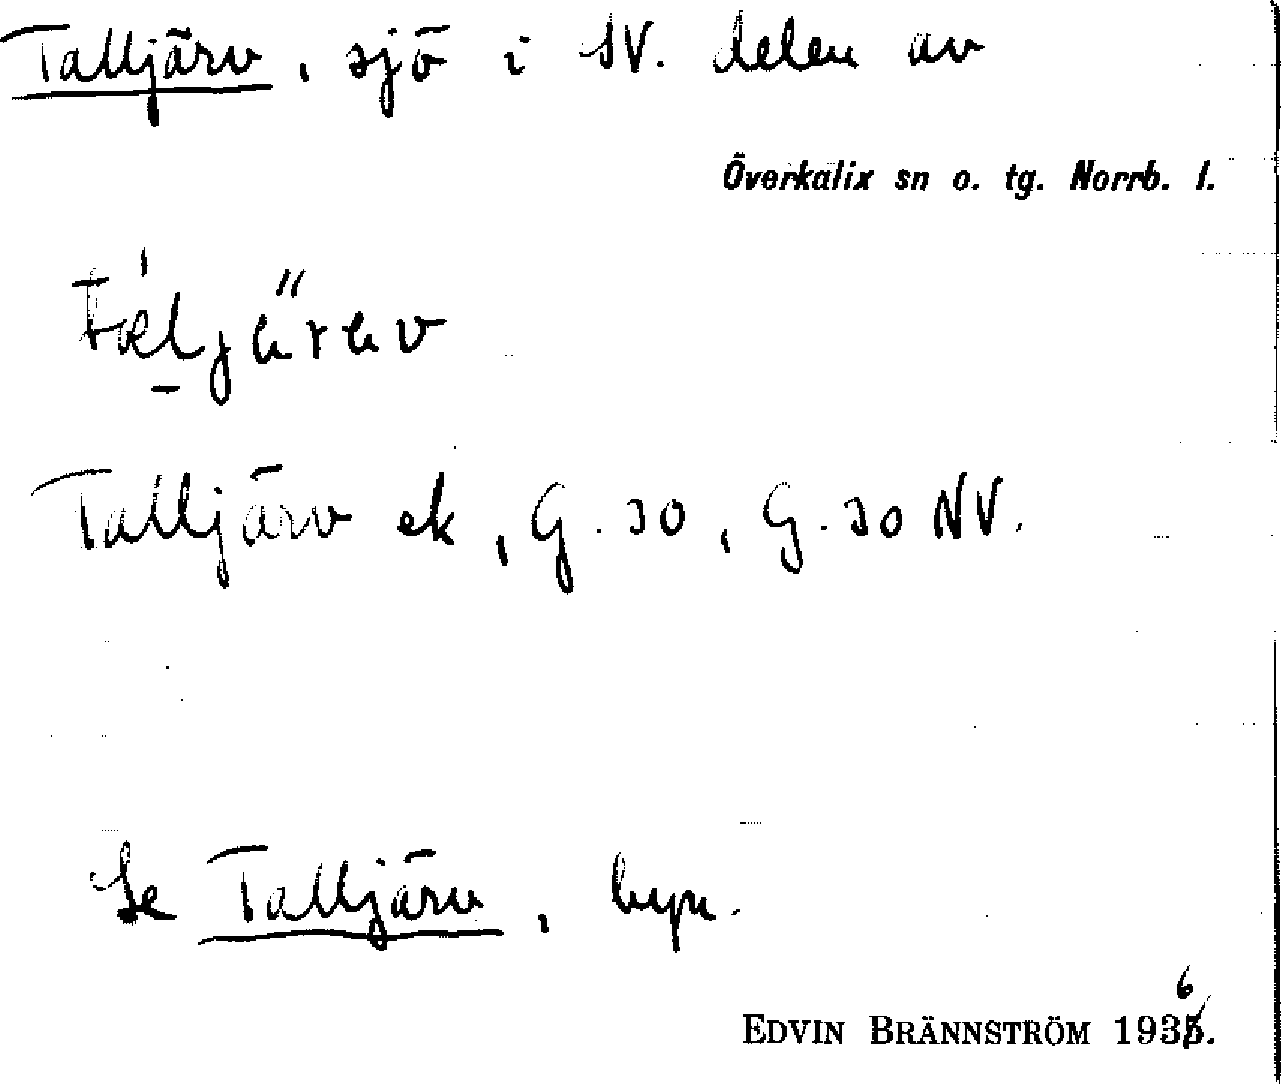 Talljärv, sjö i SV. delen av
Överkalix sn o. tg. Norrb. l.
Talljärv ek, G. 30, G. 30 NV.
Se Talljärv, byn.
EDVIN BRÄNNSTRÖM 1936.